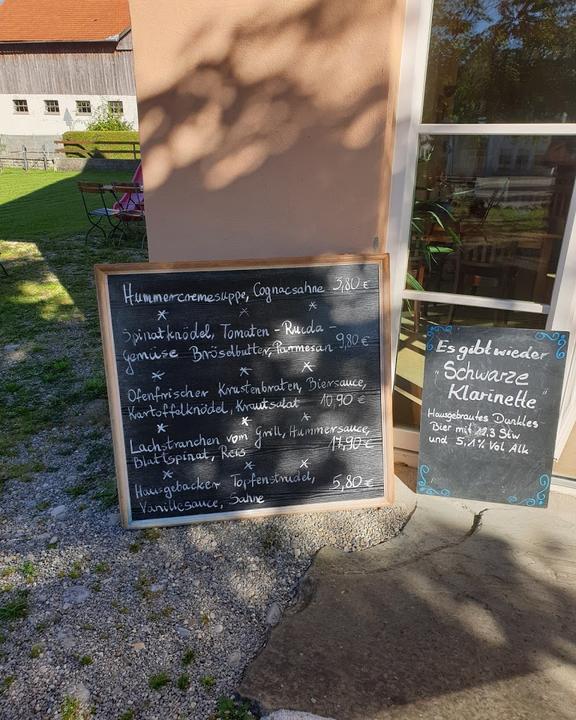 Hummercremesuppe, Cognacsahne 5,80 €
Spinatknödel, Tomaten - Rucola -
gemüse Bröselbutter, Parmesan 9,80 €
Ofenfrischer Krustenbraten, Biersauce,
Kartoffelknödel, Krautsalat 10,90 €
Lachstranchen vom Grill, Hummersauce,
Blattspinat, Reis 17,90 €
Hausgebacker Topfenstrudel,
Vanillesauce, Sahne 5,80 €
Es gibt wieder
"Schwarze
Klarinette"
Hausgebrautes Dunkles
Bier mit 12,3 Stw
und 5,1% Vol Alk